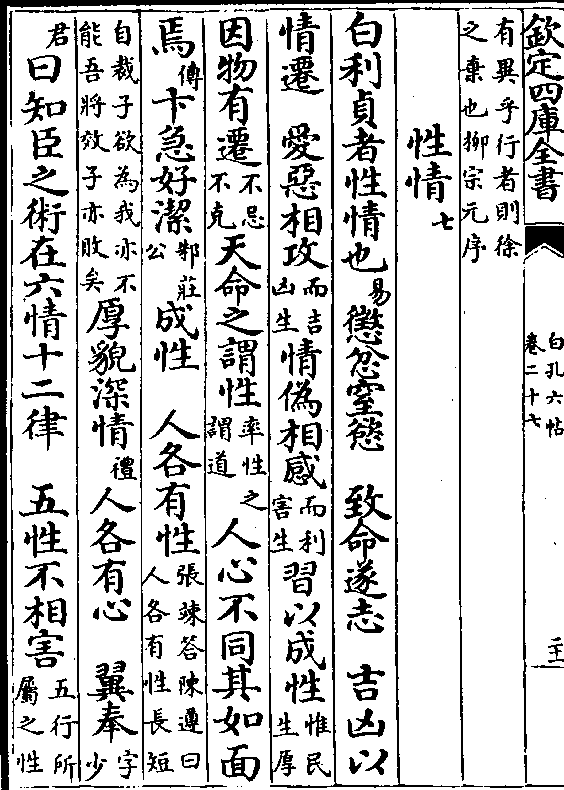 欽定四庫全書
白孔六帖
卷二十七
二十一
有異乎行者則徐
之棄也柳宗元序
性情七
白利貞者性情也易懲忿窒慾　致命遂志　吉凶以
情遷　愛惡相攻而吉凶生情偽相感而利害生習以成性惟民生厚
因物有遷不忌不克天命之謂性率性之謂道人心不同其如面
焉傳卞急好潔邾莊公成性　人各有性張竦答陳遵曰人各有性長短
自裁子欲為我亦不能吾將效子亦敗矣厚貌深情禮人各有心　翼奉字少
君曰知臣之術在六情十二律　五性不相害五行所屬之性